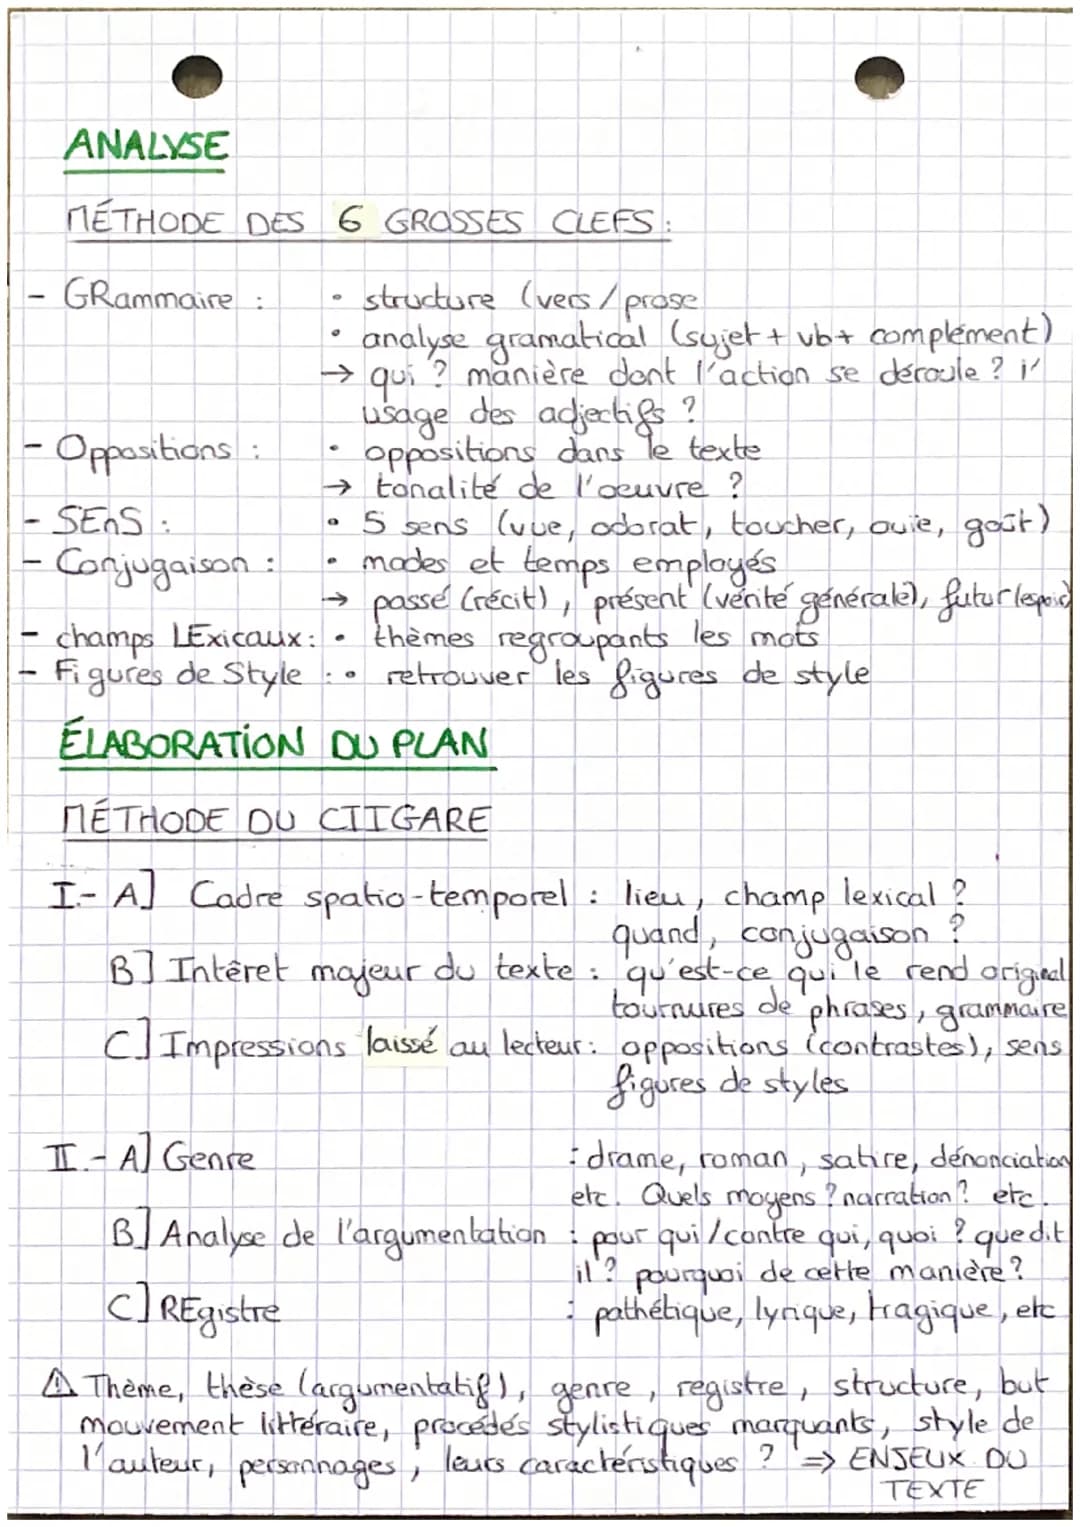 ANALYSE
MÉTHODE DES 6 GROSSES CLEFS :
- GRammaire : • structure (vers / prose
• analyse gramatical (sujet + vb + complément)
→ qui ? manière dont l'action se déroule ? i'
usage des adjectifs ?
- Oppositions : • oppositions dans le texte
→ tonalité de l'oeuvre ?
- SEnS : • 5 sens (vue, odorat, toucher, ouie, goût)
- Conjugaison : • modes et temps employés
→ passé (récit), présent (vérité générale), futur (espoir)
- champs LExicaux : • thèmes regroupants les mots
- Figures de Style : • retrouver les figures de style
ÉLABORATION DU PLAN
MÉTHODE DU CIIGARE
I.- A] Cadre spatio-temporel : lieu, champ lexical ?
quand, conjugaison ?
B] Intêret majeur du texte : qu'est-ce qui le rend original
tournures de phrases, grammaire
C] Impressions laissé au lecteur : oppositions (contrastes), sens
figures de styles
II.- A] Genre : drame, roman, satire, dénonciation
etc. Quels moyens ? narration ? etc.
B] Analyse de l'argumentation : pour qui / contre qui, quoi ? que dit
il ? pourquoi de cette manière ?
C] REgistre : pathétique, lyrique, tragique, etc
⚠ Thème, thèse (argumentatif), genre, registre, structure, but
mouvement littéraire, procédés stylistiques marquants, style de
l'auteur, personnages, leurs caractéristiques ? => ENJEUX DU
TEXTE